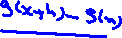 g(x+h) - g(x)